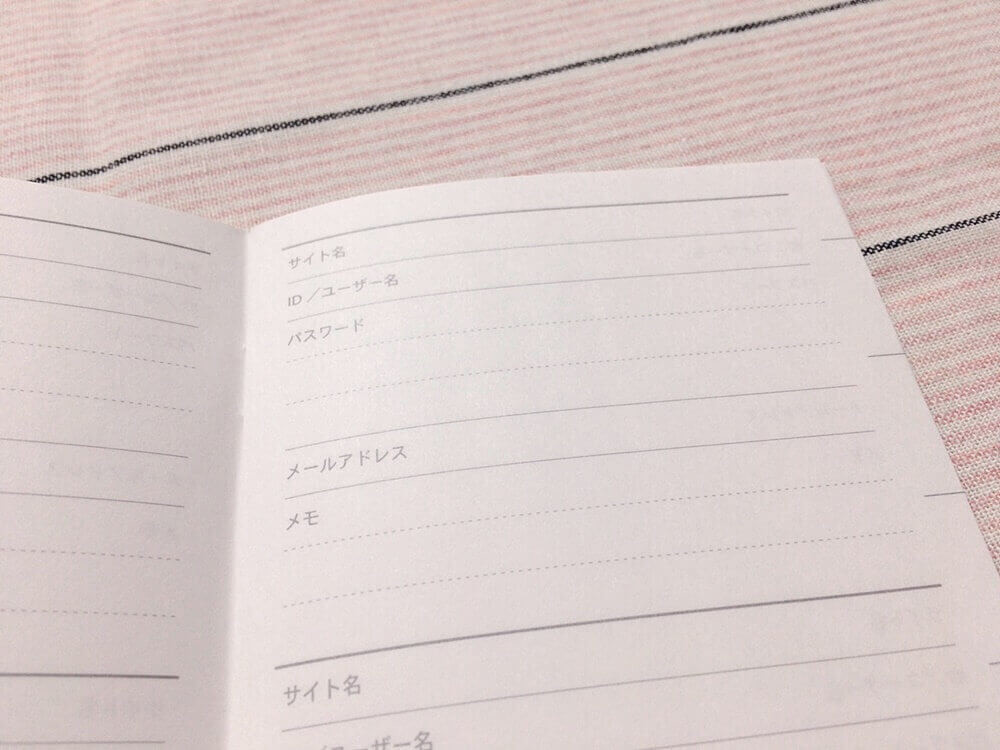 サイト名
ID／ユーザー名
パスワード
メールアドレス
メモ
サイト名
／ユーザー名